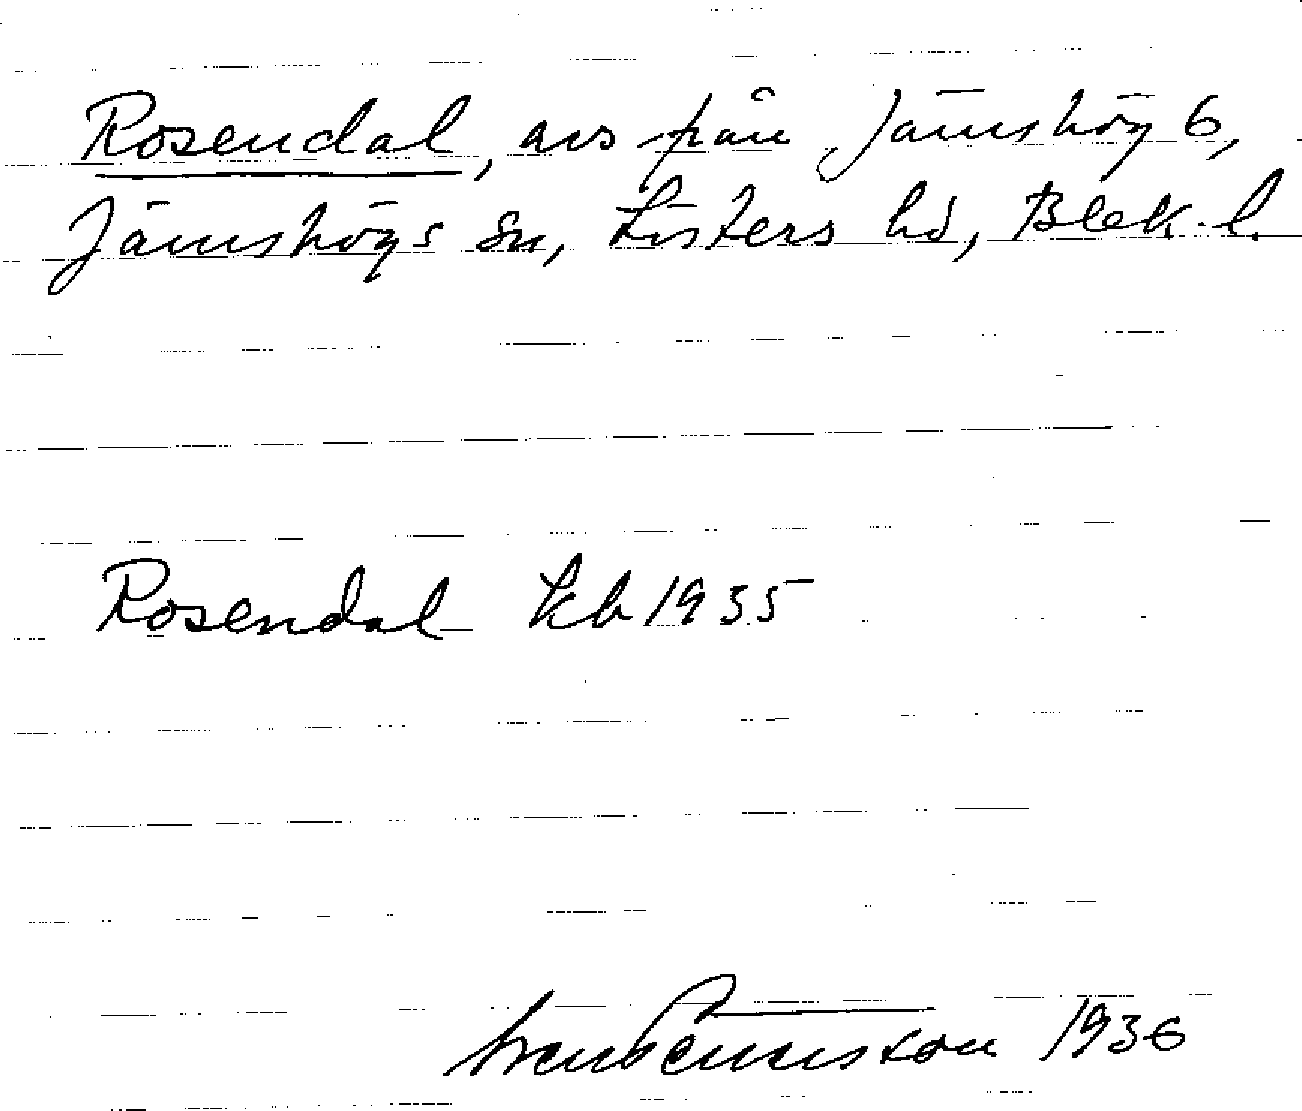 Rosendal, avs från Jämshög 6,
Jämshögs sn, Listers hd, Blek. l.
Rosendal kb 1935
Sven Benson 1936